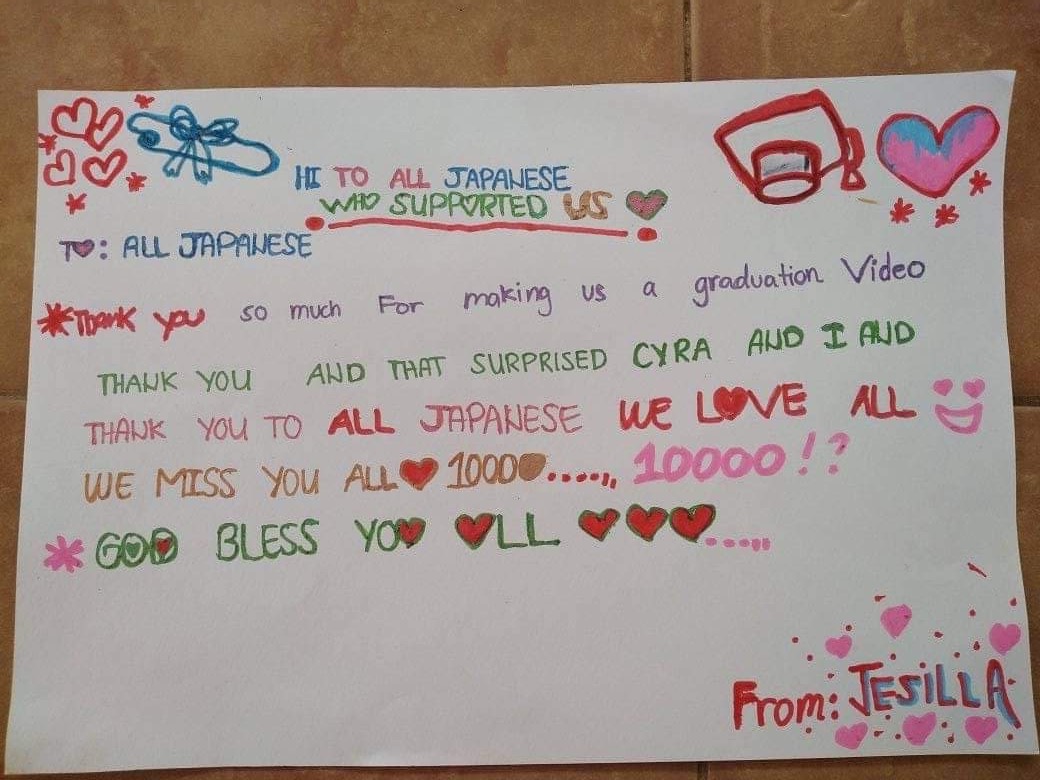 HI TO ALL JAPANESE
WHO SUPPORTED US
TO: ALL JAPANESE
Thank you so much For making us a graduation Video
THANK YOU AND THAT SURPRISED CYRA AND I AND
THANK YOU TO ALL JAPANESE WE LOVE ALL
WE MISS YOU ALL 10000....,, 10000!?
GOD BLESS YOU ALL ....,,
From: JESILLA